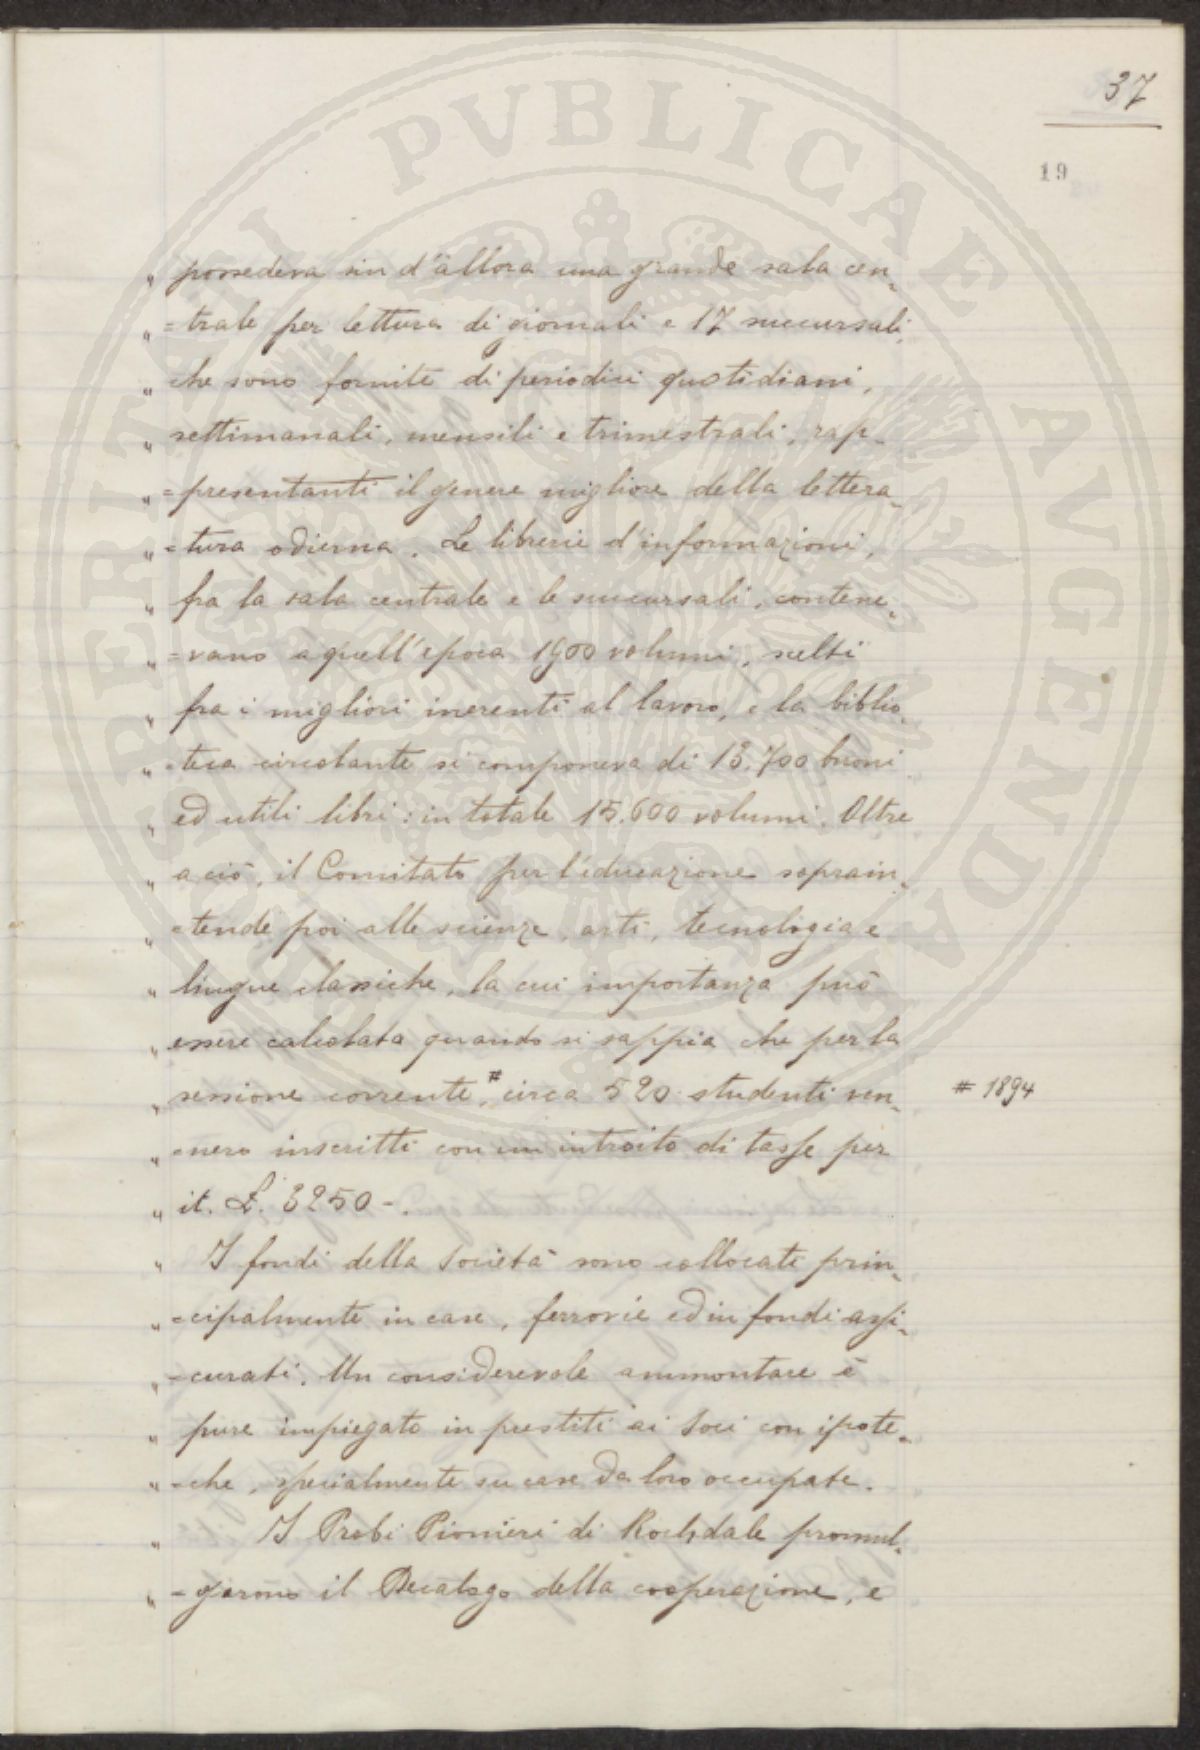 37
19
„ possedeva sin d'allora una grande sala cen„
„ =trale per lettura di giornali e 17 succursali,
„ che sono fornite di periodici quotidiani,
„ settimanali, mensili e trimestrali, rap„
„ =presentanti il genere migliore della lettera„
„ =tura odierna. Le librerie d'informazioni,
„ fra la sala centrale e le succursali, contene„
„ =vano a quell'epoca 1900 volumi, scelti
„ fra i migliori inerenti al lavoro, e la biblio„
„ =teca circolante si componeva di 13.700 buoni
„ ed utili libri: in totale 15.600 volumi. Oltre
„ a ciò, il Comitato per l'educazione soprain„
„ =tende poi alle scienze, arti, tecnologia e
„ lingue classiche, la cui importanza può
„ essere calcolata quando si sappia che per la
„ sessione corrente,# circa 520 studenti ven„
# 1894
„ =nero inscritti con un introito di tasse per
„ it. £. 3250-.
„ I fondi della Società sono collocati prin„
„ =cipalmente in case, ferrovie ed in fondi assi„
„ =curati. Un considerevole ammontare è
„ pure impiegato in prestiti ai Soci con ipote„
„ =che, specialmente su case da loro occupate.
„ I Probi Pionieri di Rochdale promul„
„ =garono il Decalogo della cooperazione, e
PROSPERITATI PVBLICAE AVGENDAE